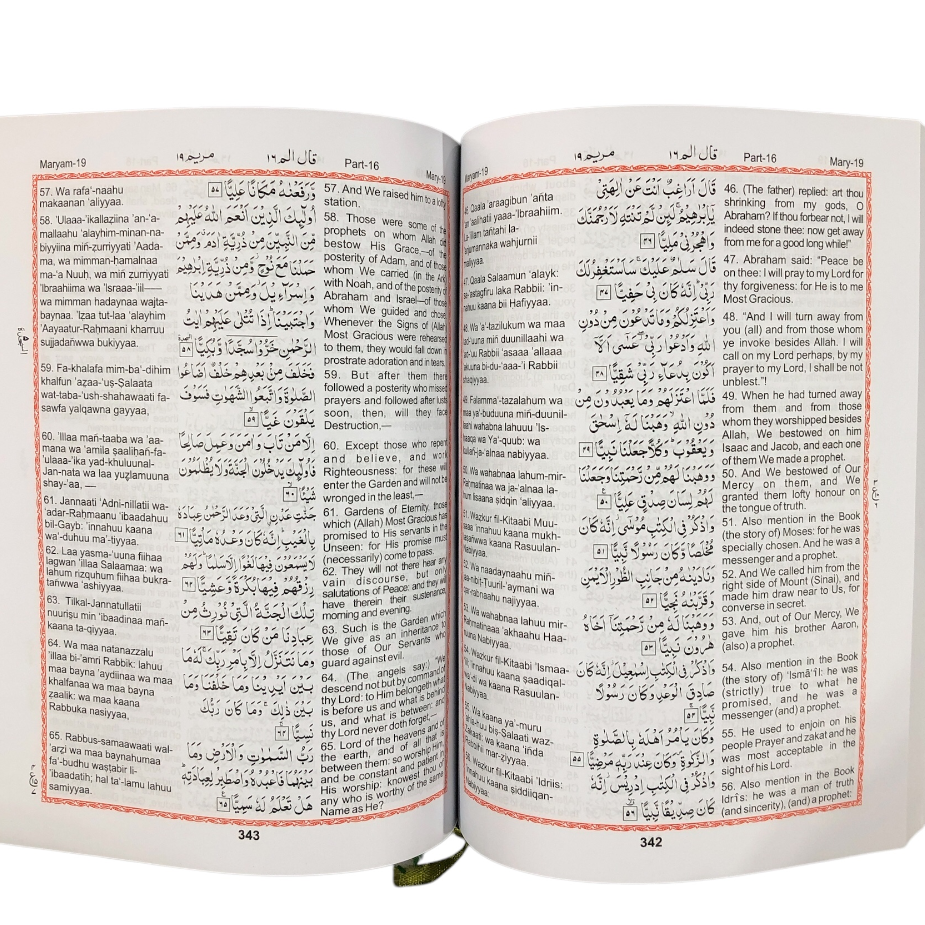 Maryam-19
مريم ١٩
قال الم ١٦
Part-16
Mary-19
46. Qaala araagibun 'añta
'an 'aalihatii yaaa-'Ibraahiim.
wahjurnii
47. Qaala Salaamun 'alayk:
sa-'astagfiru laka Rabbii: 'in-
nahuu kaana bii Hafiyyaa.
48. Wa 'a'-tazilukum wa maa
duunillaahi wa
Rabbii 'asaaa 'allaaa
bi-du-'aaa-'i Rabbii
49. Falamma-'tazalahum wa
maa ya'-buduuna miñ-duunil-
laahi wahabna lahuuu 'Is-
haaqa wa Ya'-quub: wa
ja-'alnaa nabiyyaa.
50. Wa wahabnaa lahum-mir-
Rahmatinaa wa ja-'alnaa la-
hum lisaana sidqin 'aliyyaa.
51. Wazkur fil-Kitaabi Muu-
saaa 'innahuu kaana mukh-
kaana Rasuulan-
Nabiyyaa.
52. Wa naadaynaahu miñ-
'aymani wa
qarrabnaahu najiyyaa.
53. Wa wahabnaa lahuu mir-
Rahmatinaaa 'akhaahu Haa-
Nabiyyaa.
54. Wazkur fil-Kitaabi 'Ismaa-
'innahuu kaana ṣaadiqal-
wa kaana Rasuulan-
Nabiyyaa.
55. Wa kaana ya'-muru
bis-Ṣalaati waz-
Zakaati: wa kaana 'iñda
Rabbihii mar-ẓiyyaa.
56. Wazkur fil-Kitaabi 'Idriis:
'innahuu kaana ṣiddiiqan-
Nabiyyaa.
قَالَ أَرَاغِبٌ أَنْتَ عَنْ اٰلِهَتِيْ
يٰٓاِبْرٰهِيْمُ ۚ لَئِنْ لَّمْ تَنْتَهِ لَاَرْجُمَنَّكَ
وَاهْجُرْنِيْ مَلِيًّا ۴۶
قَالَ سَلٰمٌ عَلَيْكَ ۚ سَاَسْتَغْفِرُ لَكَ
رَبِّيْ ؕ اِنَّهٗ كَانَ بِيْ حَفِيًّا ۴۷
وَاَعْتَزِلُكُمْ وَمَا تَدْعُوْنَ مِنْ دُوْنِ
اللّٰهِ وَاَدْعُوْا رَبِّيْ ۖ عَسٰٓى اَلَّآ
اَكُوْنَ بِدُعَآءِ رَبِّيْ شَقِيًّا ۴۸
فَلَمَّا اعْتَزَلَهُمْ وَمَا يَعْبُدُوْنَ مِنْ
دُوْنِ اللّٰهِ ۙ وَهَبْنَا لَهٗٓ اِسْحٰقَ
وَيَعْقُوْبَ ؕ وَكُلًّا جَعَلْنَا نَبِيًّا ۴۹
وَوَهَبْنَا لَهُمْ مِّنْ رَّحْمَتِنَا وَجَعَلْنَا
لَهُمْ لِسَانَ صِدْقٍ عَلِيًّا ۵۰
وَاذْكُرْ فِي الْكِتٰبِ مُوْسٰٓى ؗ اِنَّهٗ كَانَ
مُخْلَصًا وَّكَانَ رَسُوْلًا نَّبِيًّا ۵۱
وَنَادَيْنٰهُ مِنْ جَانِبِ الطُّوْرِ الْاَيْمَنِ
وَقَرَّبْنٰهُ نَجِيًّا ۵۲
وَوَهَبْنَا لَهٗ مِنْ رَّحْمَتِنَآ اَخَاهُ
هٰرُوْنَ نَبِيًّا ۵۳
وَاذْكُرْ فِي الْكِتٰبِ اِسْمٰعِيْلَ ؗ اِنَّهٗ كَانَ
صَادِقَ الْوَعْدِ وَكَانَ رَسُوْلًا
نَّبِيًّا ۵۴
وَكَانَ يَاْمُرُ اَهْلَهٗ بِالصَّلٰوةِ
وَالزَّكٰوةِ ۪ وَكَانَ عِنْدَ رَبِّهٖ مَرْضِيًّا ۵۵
وَاذْكُرْ فِي الْكِتٰبِ اِدْرِيْسَ ؗ اِنَّهٗ
كَانَ صِدِّيْقًا نَّبِيًّا ۵۶
46. (The father) replied: art thou
shrinking from my gods, O
Abraham? If thou forbear not, I will
indeed stone thee: now get away
from me for a good long while!"
47. Abraham said: "Peace be
on thee: I will pray to my Lord for
thy forgiveness: for He is to me
Most Gracious.
48. "And I will turn away from
you (all) and from those whom
ye invoke besides Allah. I will
call on my Lord perhaps, by my
prayer to my Lord, I shall be not
unblest."!
49. When he had turned away
from them and from those
whom they worshipped besides
Allah, We bestowed on him
Isaac and Jacob, and each one
of them We made a prophet.
50. And We bestowed of Our
Mercy on them, and We
granted them lofty honour on
the tongue of truth.
51. Also mention in the Book
(the story of) Moses: for he was
specially chosen. And he was a
messenger and a prophet.
52. And We called him from the
right side of Mount (Sinai), and
made him draw near to Us, for
converse in secret.
53. And, out of Our Mercy, We
gave him his brother Aaron,
(also) a prophet.
54. Also mention in the Book
(the story of) 'Ismā'īl: he was
(strictly) true to what he
promised, and he was a
messenger (and) a prophet.
55. He used to enjoin on his
people Prayer and zakat and he
was most acceptable in the
sight of his Lord.
56. Also mention in the Book
Idrīs: he was a man of truth
(and sincerity), (and) a prophet:
342
Maryam-19
مريم ١٩
قال الم ١٦
Part-16
Mary-19
57. Wa rafa'-naahu
makaanan 'aliyyaa.
58. 'Ulaaa-'ikallaziina 'an-'a-
mallaahu 'alayhim-minan-na-
biyyiina miñ-zurriyyati 'Aada-
ma, wa mimman-ḥamalnaa
ma-'a Nuuḥ, wa miñ zurriyyati
'Ibraahiima wa 'Israaa-'iil—
wa mimman hadaynaa wajta-
baynaa. 'Izaa tut-laa 'alayhim
'Aayaatur-Raḥmaani kharruu
sujjadañwwa bukiyyaa.
59. Fa-khalafa mim-ba'-dihim
khalfun 'aẓaa-'uṣ-Ṣalaata
wat-taba-'ush-shahawaati fa-
sawfa yalqawna gayyaa,
60. 'Illaa mañ-taaba wa 'aa-
mana wa 'amila ṣaaliḥañ-fa-
'ulaaa-'ika yad-khuluunal-
Jan-nata wa laa yuẓlamuuna
shay-'aa, —
61. Jannaati 'Adni-nillatii wa-
'adar-Raḥmaanu 'ibaadahuu
bil-Gayb: 'innahuu kaana
wa'-duhuu ma'-tiyyaa.
62. Laa yasma-'uuna fiihaa
lagwan 'illaa Salaamaa: wa
lahum rizquhum fiihaa bukra-
tañwwa 'ashiyyaa.
63. Tilkal-Jannatullatii
nuuriṣu min 'ibaadinaa mañ-
kaana ta-qiyyaa.
64. Wa maa natanazzalu
'illaa bi-'amri Rabbik: lahuu
maa bayna 'aydiinaa wa maa
khalfanaa wa maa bayna
zaalik: wa maa kaana
Rabbuka nasiyyaa,
65. Rabbus-samaawaati wal-
'arẓi wa maa baynahumaa
fa'-budhu waṣṭabir li-
'ibaadatih; hal ta'-lamu lahuu
samiyyaa.
وَّرَفَعْنٰهُ مَكَانًا عَلِيًّا ۵۷
اُولٰٓئِكَ الَّذِيْنَ اَنْعَمَ اللّٰهُ عَلَيْهِمْ
مِّنَ النَّبِيّٖنَ مِنْ ذُرِّيَّةِ اٰدَمَ ۗ وَمِمَّنْ
حَمَلْنَا مَعَ نُوْحٍ ؗ وَّمِنْ ذُرِّيَّةِ اِبْرٰهِيْمَ
وَاِسْرَآءِيْلَ ؗ وَمِمَّنْ هَدَيْنَا
وَاجْتَبَيْنَا ؕ اِذَا تُتْلٰى عَلَيْهِمْ اٰيٰتُ
الرَّحْمٰنِ خَرُّوْا سُجَّدًا وَّبُكِيًّا ۵۸
فَخَلَفَ مِنْۢ بَعْدِهِمْ خَلْفٌ اَضَاعُوا
الصَّلٰوةَ وَاتَّبَعُوا الشَّهَوٰتِ فَسَوْفَ
يَلْقَوْنَ غَيًّا ۵۹
اِلَّا مَنْ تَابَ وَاٰمَنَ وَعَمِلَ صَالِحًا
فَاُولٰٓئِكَ يَدْخُلُوْنَ الْجَنَّةَ وَلَا يُظْلَمُوْنَ
شَيْئًا ۶۰
جَنّٰتِ عَدْنِ الَّتِيْ وَعَدَ الرَّحْمٰنُ عِبَادَهٗ
بِالْغَيْبِ ؕ اِنَّهٗ كَانَ وَعْدُهٗ مَاْتِيًّا ۶۱
لَا يَسْمَعُوْنَ فِيْهَا لَغْوًا اِلَّا سَلٰمًا ؕ وَلَهُمْ
رِزْقُهُمْ فِيْهَا بُكْرَةً وَّعَشِيًّا ۶۲
تِلْكَ الْجَنَّةُ الَّتِيْ نُوْرِثُ مِنْ
عِبَادِنَا مَنْ كَانَ تَقِيًّا ۶۳
وَمَا نَتَنَزَّلُ اِلَّا بِاَمْرِ رَبِّكَ ۚ لَهٗ مَا
بَيْنَ اَيْدِيْنَا وَمَا خَلْفَنَا وَمَا
بَيْنَ ذٰلِكَ ۚ وَمَا كَانَ رَبُّكَ
نَسِيًّا ۶۴
رَبُّ السَّمٰوٰتِ وَالْاَرْضِ وَمَا
بَيْنَهُمَا فَاعْبُدْهُ وَاصْطَبِرْ لِعِبَادَتِهٖ ؕ
هَلْ تَعْلَمُ لَهٗ سَمِيًّا ۶۵
57. And We raised him to a lofty
station.
58. Those were some of the
prophets on whom Allah did
bestow His Grace,—of the
posterity of Adam, and of those
whom We carried (in the Ark)
with Noah, and of the posterity of
Abraham and Israel—of those
whom We guided and chose;
Whenever the Signs of (Allah)
Most Gracious were rehearsed
to them, they would fall down in
prostrate adoration and in tears.
59. But after them there
followed a posterity who missed
prayers and followed after lusts
soon, then, will they face
Destruction,—
60. Except those who repent
and believe, and work
Righteousness: for these will
enter the Garden and will not be
wronged in the least,—
61. Gardens of Eternity, those
which (Allah) Most Gracious has
promised to His servants in the
Unseen: for His promise must
(necessarily) come to pass.
62. They will not there hear any
vain discourse, but only
salutations of Peace: and they will
have therein their sustenance,
morning and evening.
63. Such is the Garden which
We give as an inheritance to
those of Our Servants who
guard against evil.
64. (The angels say:) "We
descend not but by command of
thy Lord: to Him belongeth what
is before us and what is behind
us, and what is between: and
thy Lord never doth forget,—
65. Lord of the heavens and of
the earth, and of all that is
between them: so worship Him,
and be constant and patient in
His worship: knowest thou of
any who is worthy of the same
Name as He?
343